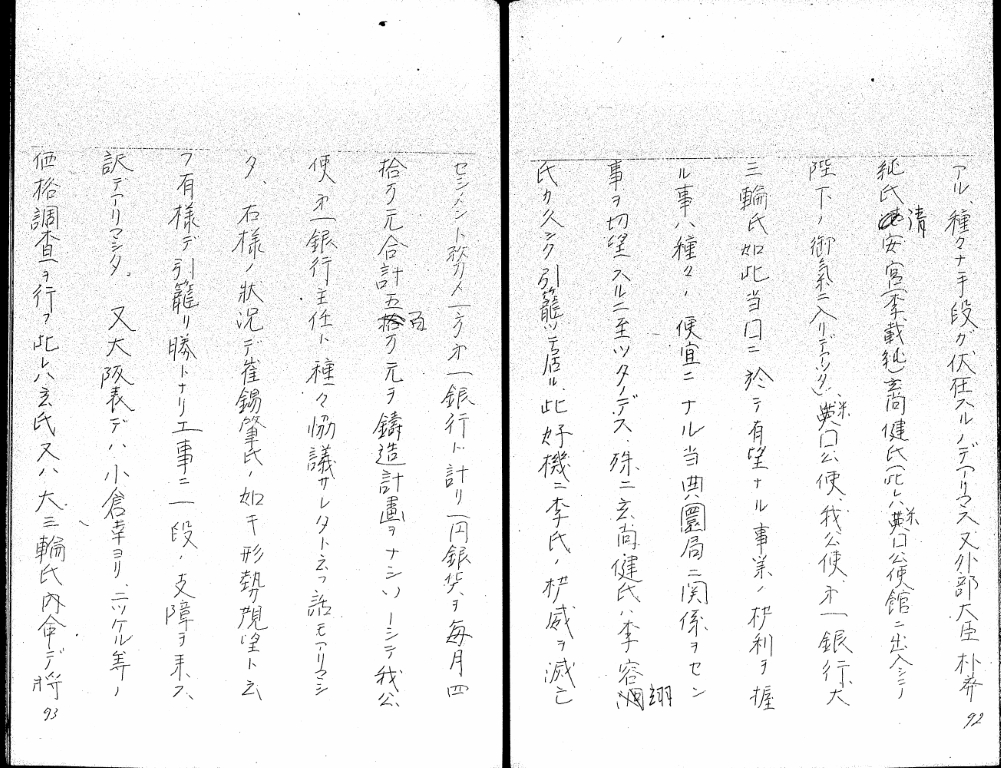 アル、種々ナ手段ガ伏在スルノデアリマス又外部大臣朴齊
純氏安宮(李載純)高健氏(此レハ米公使館ニ出入シテ
清
陛下ノ御氣ニ入リデアッタ)米公使、我公使、オ一銀行大
三輪氏如此当口ニ於テ有望ナル事業ノ权利ヲ握
ル事ハ種々ノ便宜ニナル当典圜局ニ関係ヲセン
事ヲ切望スルニ至ッタノデス、殊ニ玄尚健氏ハ李容翊
氏カ久シク引籠ツテ居ル、此好機ニ李氏ノ权威ヲ滅亡
92
セシメント欲カメ一方オ一銀行ト計リ一円銀貨ヲ毎月四
拾万元合計五百万元ヲ鑄造計畫ヲナシソーシテ我公
使オ一銀行主任ト種々協議サレタト云フ話モアリマシ
タ、右様ノ狀況デ崔錫肇氏ノ如キ形勢覗望ト云
フ有様デ引籠リ勝トナリ工事ニ一段ノ支障ヲ来ス
訳デアリマシタ。又大阪表デハ小倉幸ヨリ、ニッケル等ノ
価格調査ヲ行フ此レハ玄氏又ハ大三輪氏内命デ將
93